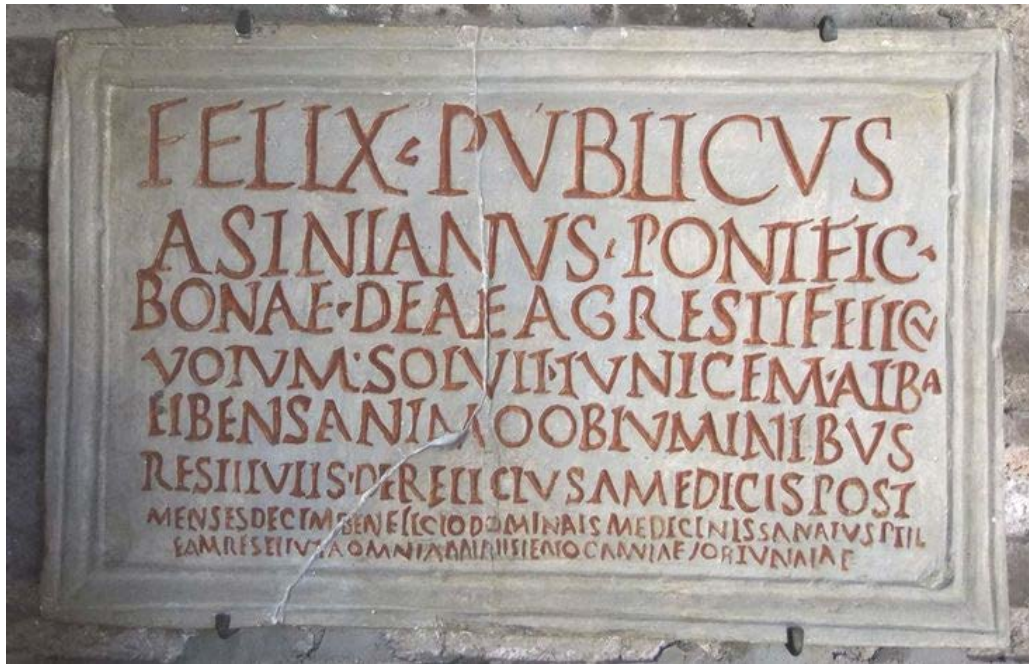 FELIX · PVBLICVS
ASINIANVS · PONTIFIC ·
BONAE · DEAE AGRESTI FELICV
VOTVM · SOLVIT · IVNICEM · ALBA
LIBENS ANIMO OB LVMINIBVS
RESTITVTIS · DERELICTVS A MEDICIS POST
MENSES DECEM BENEFICIO DOMINAES MEDICINIS SANATVS PER
EAM RESTITVTA OMNIA MINISTERIO CANNIAE FORTVNATAE